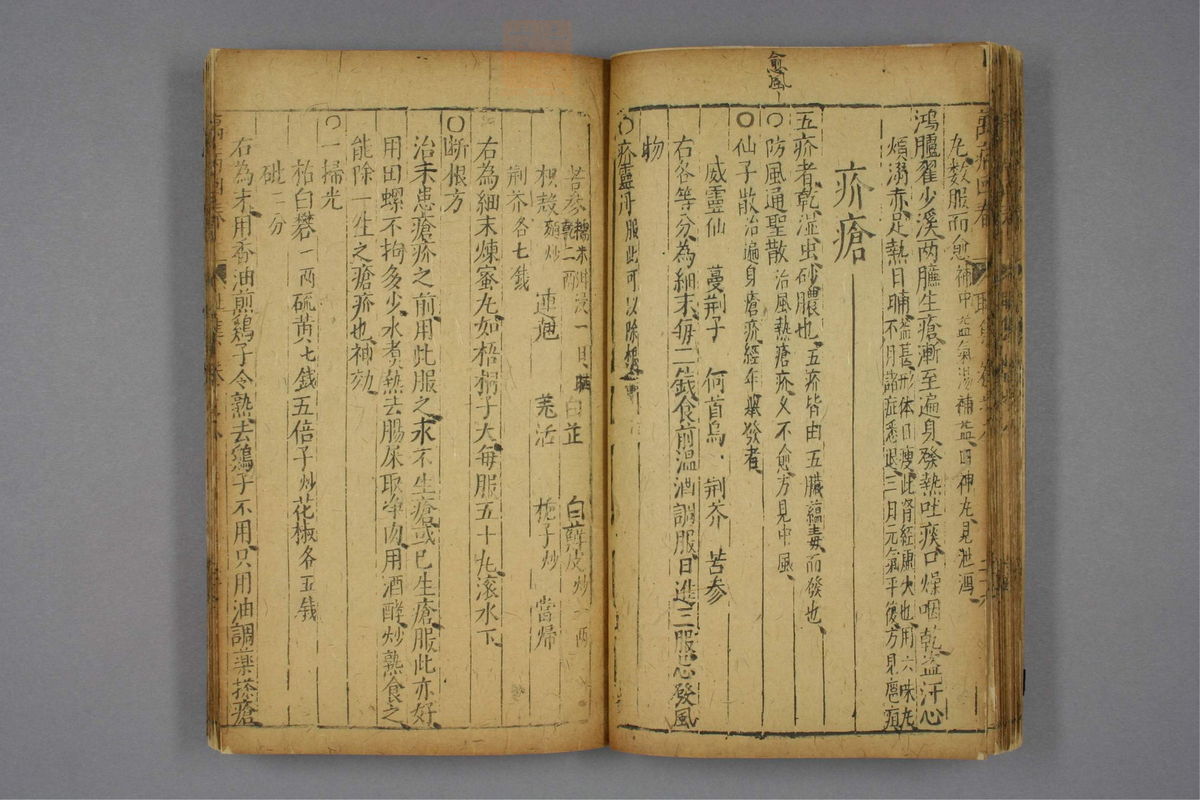 愈風
丸數服而愈補中益氣湯補益四神丸見泄瀉
鴻臚翟少溪兩臁生瘡漸至遍身發熱吐痰口燥咽乾盗汗心
煩溺赤足熱日晡益甚形体日瘦此腎經虛火也用六味丸
不月諸症悉退三月元氣平復方見
疥瘡
五疥者乾湿虫砂膿也五疥皆由五臟蘊毒而發也
○防風通聖散治風熱瘡疥久不愈方見中風
○仙子散治遍身瘡疥經年舉發者
威靈仙 蔓荆子 何首烏 荆芥 苦参
右各等分為細末每二錢食前溫酒調服日進二服忌發風
物
○疥靈丹服此可以除根
苦参糯米泔浸一日晒乾二兩 白芷 白蘚皮炒一兩
枳殻麺炒 連翹 羗活 梔子炒 當帰
荆芥各七錢
右為細末煉蜜丸如梧桐子大每服五十丸滚水下
○断根方
治未患瘡疥之前用此服之永不生瘡或已生瘡服此亦好
用田螺不拘多少水煮熟去腸屎取净肉用酒醡炒熟食之
能除一生之瘡疥也神効
○一掃光
枯白礬一兩硫黄七錢五倍子炒花椒各五錢
砒一分
右為末用香油煎鷄子令熟去鷄子不用只用油調藥搽瘡